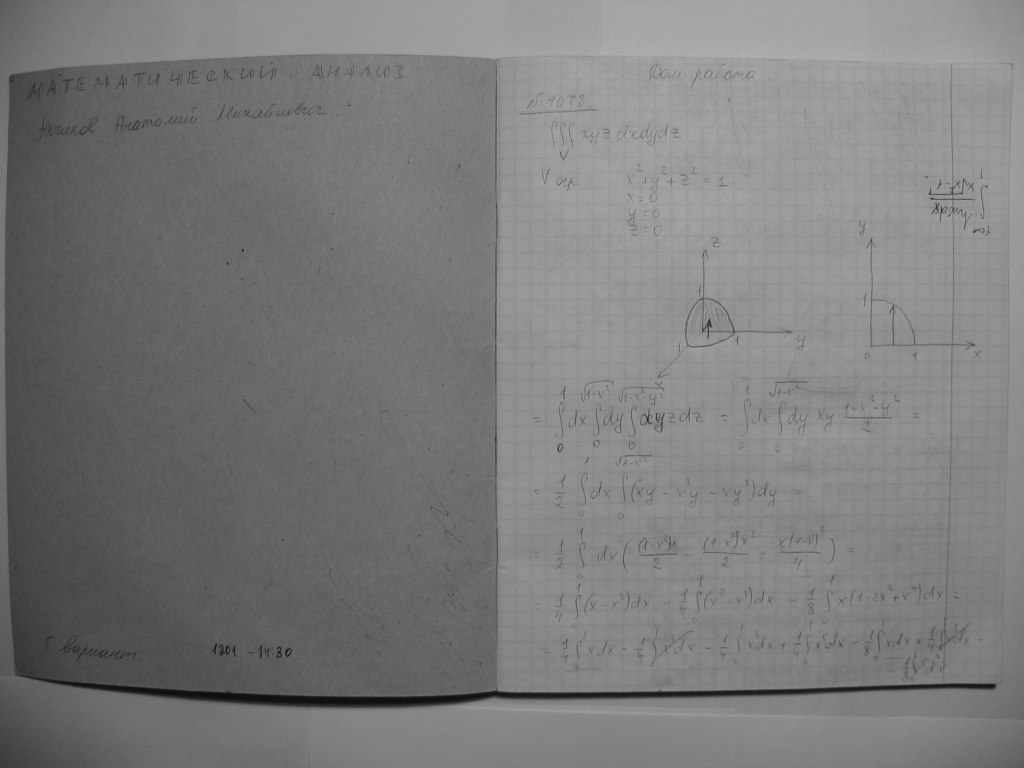 МАТЕМАТИЧЕСКИЙ АНАЛИЗ
Анатолий Михайлович
5 вариант.
1201 - 1430
Дом работа
№4078.
∫∫∫ xyz dxdydz
V
V огр. x² + y² + z² = 1
x = 0
y = 0
z = 0
z
1
1
1
y
x
y
1
0
1
x
= ∫₀¹ dx ∫₀^√(1-x²) dy ∫₀^√(1-x²-y²) xyz dz = ∫₀¹ dx ∫₀^√(1-x²) dy xy (1-x²-y²)/2 =
= 1/2 ∫₀¹ dx ∫₀^√(1-x²) (xy - x³y - xy³) dy =
= 1/2 ∫₀¹ dx ( (1-x²)x/2 - (1-x²)x³/2 - x(1-x²)²/4 ) =
= 1/4 ∫₀¹ (x - x³) dx - 1/4 ∫₀¹ (x³ - x⁵) dx - 1/8 ∫₀¹ x(1 - 2x² + x⁴) dx =
= 1/4 ∫₀¹ x dx - 1/4 ∫₀¹ x³ dx - 1/4 ∫₀¹ x³ dx + 1/4 ∫₀¹ x⁵ dx - 1/8 ∫₀¹ x dx + 1/4 ∫₀¹ x³ dx -